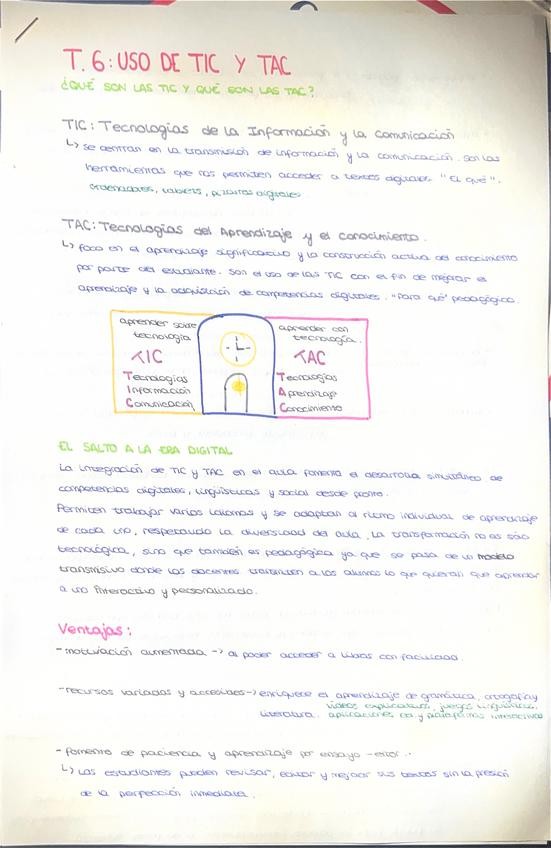 T. 6: USO DE TIC Y TAC
¿QUÉ SON LAS TIC Y QUÉ SON LAS TAC?
TIC: Tecnologías de la Información y la Comunicación
↳ se centran en la transmisión de información y la comunicación. Son las
herramientas que nos permiten acceder a textos digitales. "El qué".
Ordenadores, tablets, pizarras digitales
TAC: Tecnologías del Aprendizaje y el Conocimiento.
↳ foco en el aprendizaje significativo y la construcción activa del conocimiento
por parte del estudiante. Son el uso de las TIC con el fin de mejorar el
aprendizaje y la adquisición de competencias digitales. "Para qué" pedagógico.
aprender sobre
tecnología
TIC
Tecnologías
Información
Comunicación
aprender con
tecnología.
TAC
Tecnologías
Aprendizaje
Conocimiento
EL SALTO A LA ERA DIGITAL
La integración de TIC y TAC en el aula fomenta el desarrollo simultáneo de
competencias digitales, lingüísticas y social desde pronto.
Permiten trabajar varios idiomas y se adaptan al ritmo individual de aprendizaje
de cada uno, respetando la diversidad del aula. La transformación no es sólo
tecnológica, sino que también es pedagógica ya que se pasa de un modelo
transmisivo donde los docentes transmiten a los alumnos lo que quieran que aprendan
a uno interactivo y personalizado.
Ventajas:
- motivación aumentada -> al poder acceder a libros con facilidad.
- recursos variados y accesibles -> enriquece el aprendizaje de gramática, ortografía y
vídeos explicativos, juegos lingüísticos,
literatura. aplicaciones y plataformas interactivas
- fomento de paciencia y aprendizaje por ensayo-error.
↳ Los estudiantes pueden revisar, editar y mejorar sus textos sin la presión
de la perfección inmediata.